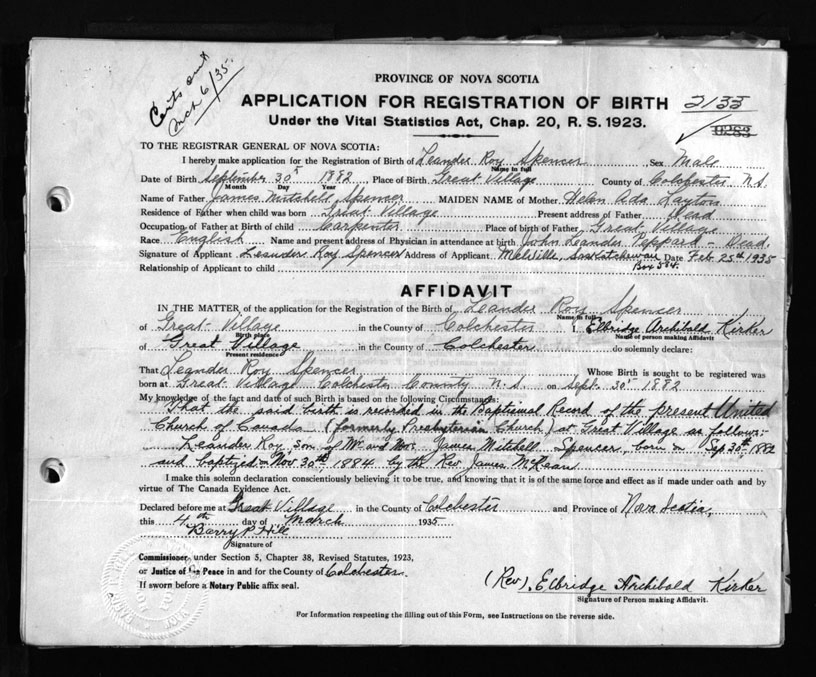 Certs sent
Mch 6/35.
PROVINCE OF NOVA SCOTIA
APPLICATION FOR REGISTRATION OF BIRTH 2133
Under the Vital Statistics Act, Chap. 20, R. S. 1923.
TO THE REGISTRAR GENERAL OF NOVA SCOTIA:
I hereby make application for the Registration of Birth of Leander Roy Spencer Sex Male
Name in full
Date of Birth September 30th 1882 Place of Birth Great Village County of Colchester N.S.
Month Day Year
Name of Father James Mitchell Spencer MAIDEN NAME of Mother Helen Ada Layton
Residence of Father when child was born Great Village Present address of Father Dead
Occupation of Father at Birth of child Carpenter Place of birth of Father Great Village
Race English Name and present address of Physician in attendance at birth John Leander Peppard - Dead.
Signature of Applicant Leander Roy Spencer Address of Applicant Melville, Saskatchewan Date Feb 25th 1935
Box 584.
Relationship of Applicant to child
AFFIDAVIT
IN THE MATTER of the application for the Registration of the Birth of Leander Roy Spencer
Name in full
of Great Village in the County of Colchester I Elbridge Archibald Kirker
Birth place
Name of person making Affidavit
of Great Village in the County of Colchester do solemnly declare:
Present residence
That Leander Roy Spencer Whose Birth is sought to be registered was
born at Great Village Colchester County N.S. on Sept. 30th 1882
My knowledge of the fact and date of such Birth is based on the following Circumstances:
That the said birth is recorded in the Baptismal Record of the present United
Church of Canada (formerly Presbyterian Church) at Great Village as follows:-
Leander Roy, son of Mr. and Mrs. James Mitchell Spencer, born on Sep. 30th 1882
and baptized on Nov. 30th 1884 by the Rev. James McLean.
I make this solemn declaration conscientiously believing it to be true, and knowing that it is of the same force and effect as if made under oath and by
virtue of The Canada Evidence Act.
Declared before me at Great Village in the County of Colchester and Province of Nova Scotia,
this 4th day of March 1935
Barry P. Hill
Signature of
Commissioner, under Section 3, Chapter 38, Revised Statutes, 1923,
or Justice of the Peace in and for the County of Colchester.
If sworn before a Notary Public affix seal.
(Rev). Elbridge Archibald Kirker
Signature of Person making Affidavit.
For Information respecting the filling out of this Form, see Instructions on the reverse side.